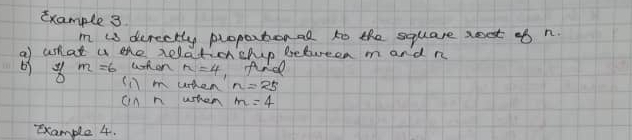 Example 3.
m is directly proportional to the square root of n.
a) what is the relationship between m and n
b) if m = 6 when n = 4, find
(i) m when n = 25
(ii) n when m = 4
Example 4.